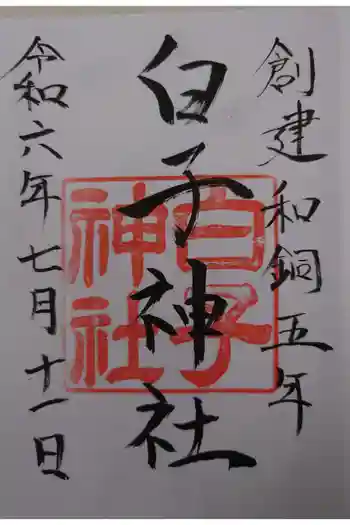 創建和銅五年
白子神社
令和六年七月十一日
白子
神社